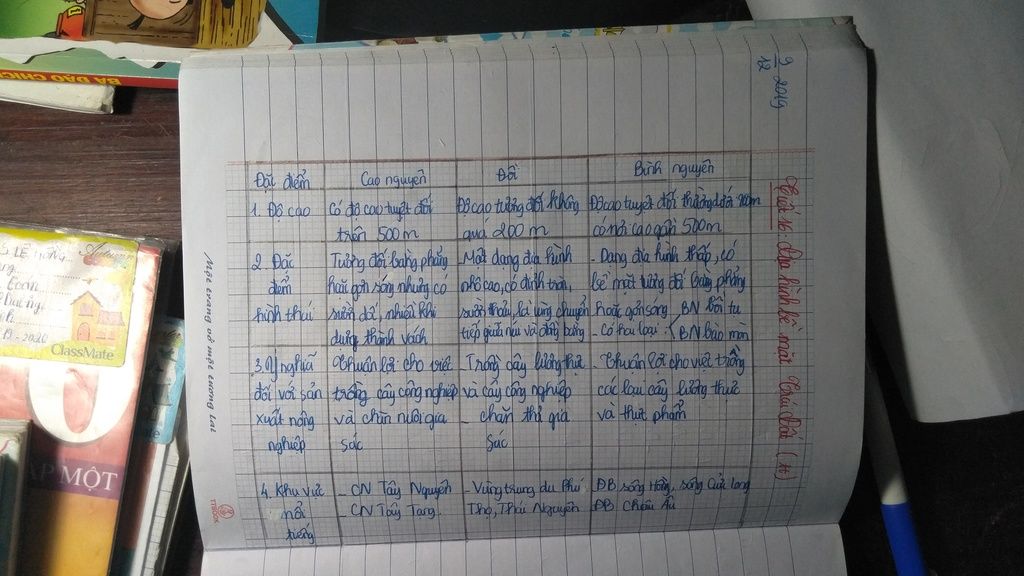 9/12 2019
Tiết 16: Địa hình bề mặt Trái Đất (tt)
Đặc điểm
Cao nguyên
Đồi
Bình nguyên
1. Độ cao
Có độ cao tuyệt đối
trên 500m
Độ cao tương đối không
quá 200m
Độ cao tuyệt đối thường dưới 200m
có nơi cao gần 500m
2. Đặc
điểm
hình thái
Tương đối bằng phẳng
hoặc gợn sóng nhưng có
sườn dốc, nhiều khi
dựng thành vách
- Một dạng địa hình
nhô cao, có đỉnh tròn,
sườn thoải, là vùng chuyển
tiếp giữa núi và đồng bằng
- Dạng địa hình thấp, có
bề mặt tương đối bằng phẳng
hoặc gợn sóng.
- Có hai loại: { BN bồi tụ
BN bào mòn
3. Ý nghĩa
đối với sản
xuất nông
nghiệp
- Thuận lợi cho việc
trồng cây công nghiệp
và chăn nuôi gia
súc
- Trồng cây lương thực
và cây công nghiệp
- chăn thả gia
súc
- Thuận lợi cho việc trồng
các loại cây lương thực
và thực phẩm
4. Khu vực
nổi
tiếng
- CN Tây Nguyên
- CN Tây Tạng
- Vùng trung du Phú
Thọ, Thái Nguyên
ĐB sông Hồng, sông Cửu Long
ĐB Châu Âu
Một trang vở một tương lai
BA ĐÀO CHÍCH
LÊ HỒNG
Toán
2020
ClassMate
ẬP MỘT